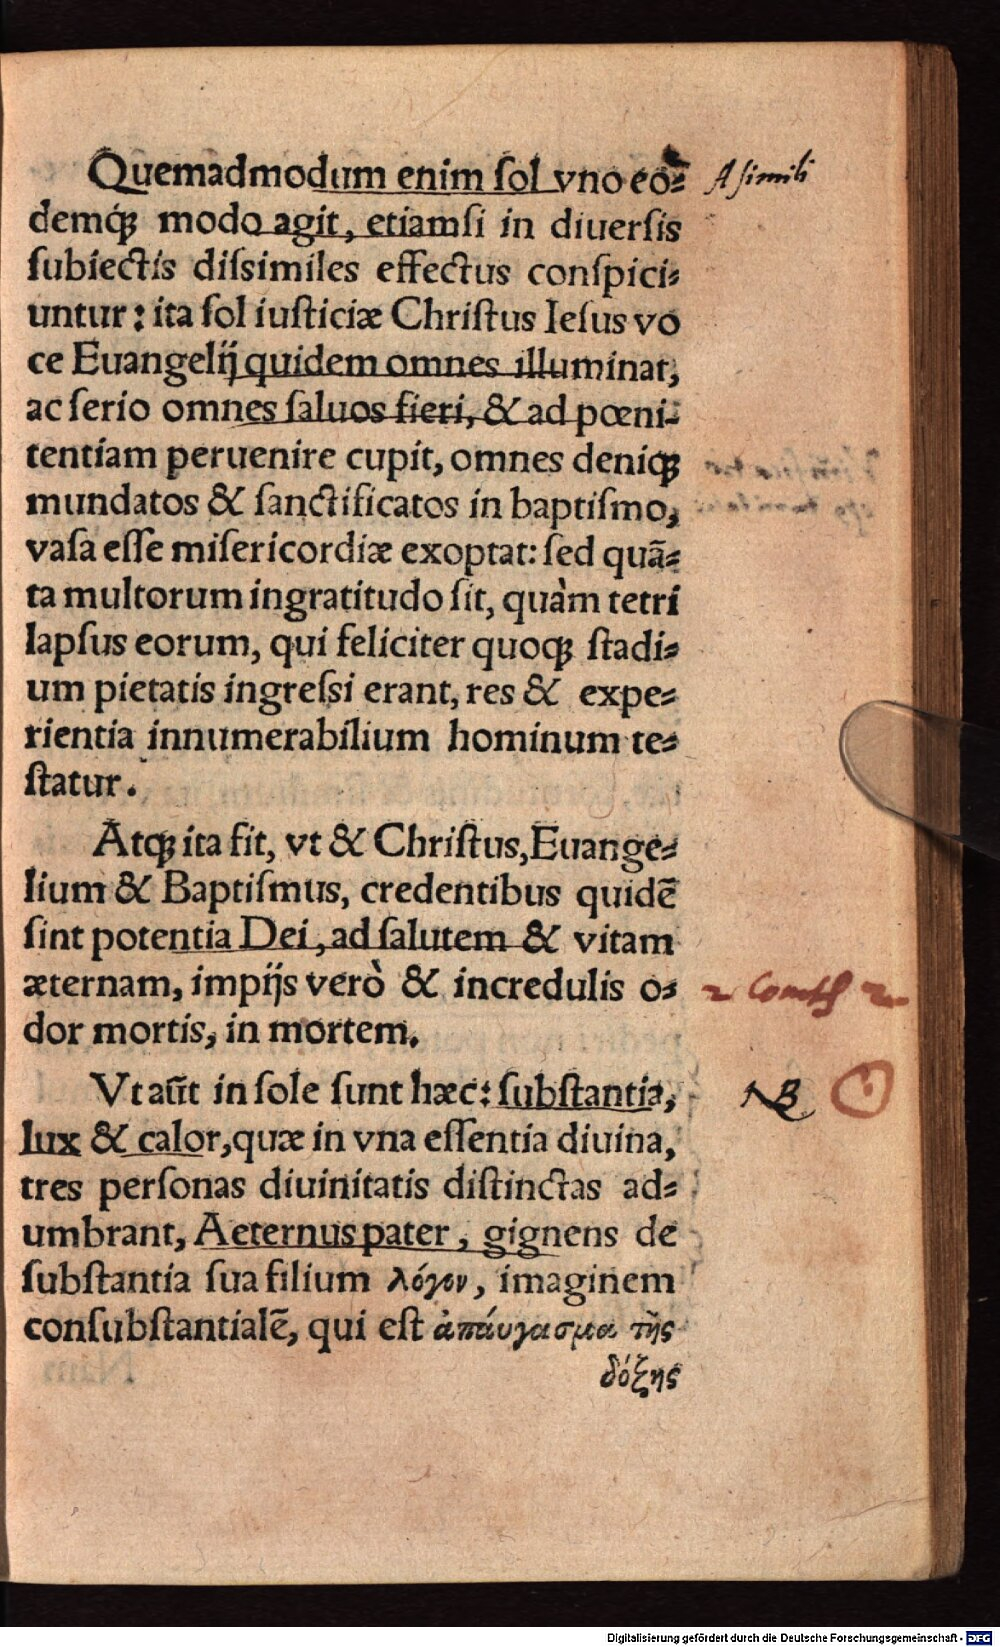 Quemadmodum enim ſol vno eo⸗
A simili
demq́ꝫ modo agit, etiamſi in diuerſis
ſubiectis diſsimiles effectus conſpici⸗
untur: ita ſol iuſticiæ Chriſtus Ieſus vo
ce Euangelij quidem omnes illuminat,
ac ſerio omnes ſaluos fieri, & ad pœni⸗
tentiam peruenire cupit, omnes deniqꝫ
mundatos & ſanctificatos in baptiſmo,
vaſa eſſe miſericordiæ exoptat: ſed quā⸗
ta multorum ingratitudo ſit, quàm tetri
lapſus eorum, qui feliciter quoqꝫ ſtadi⸗
um pietatis ingreſsi erant, res & expe⸗
rientia innumerabilium hominum te⸗
ſtatur.
Atqꝫ ita fit, vt & Chriſtus, Euange⸗
lium & Baptiſmus, credentibus quidē
ſint potentia Dei, ad ſalutem & vitam
æternam, impijs verò & incredulis o⸗
dor mortis, in mortem.
Vt aūt in ſole ſunt hæc: ſubſtantia,
NB
lux & calor, quæ in vna eſſentia diuina,
tres perſonas diuinitatis diſtinctas ad⸗
umbrant, Aeternus pater, gignens de
ſubſtantia ſua filium λόγον, imaginem
conſubſtantialē, qui eſt ἀπάυγασμα τῆς
δόξης
Digitalisierung gefördert durch die Deutsche Forschungsgemeinschaft - DFG